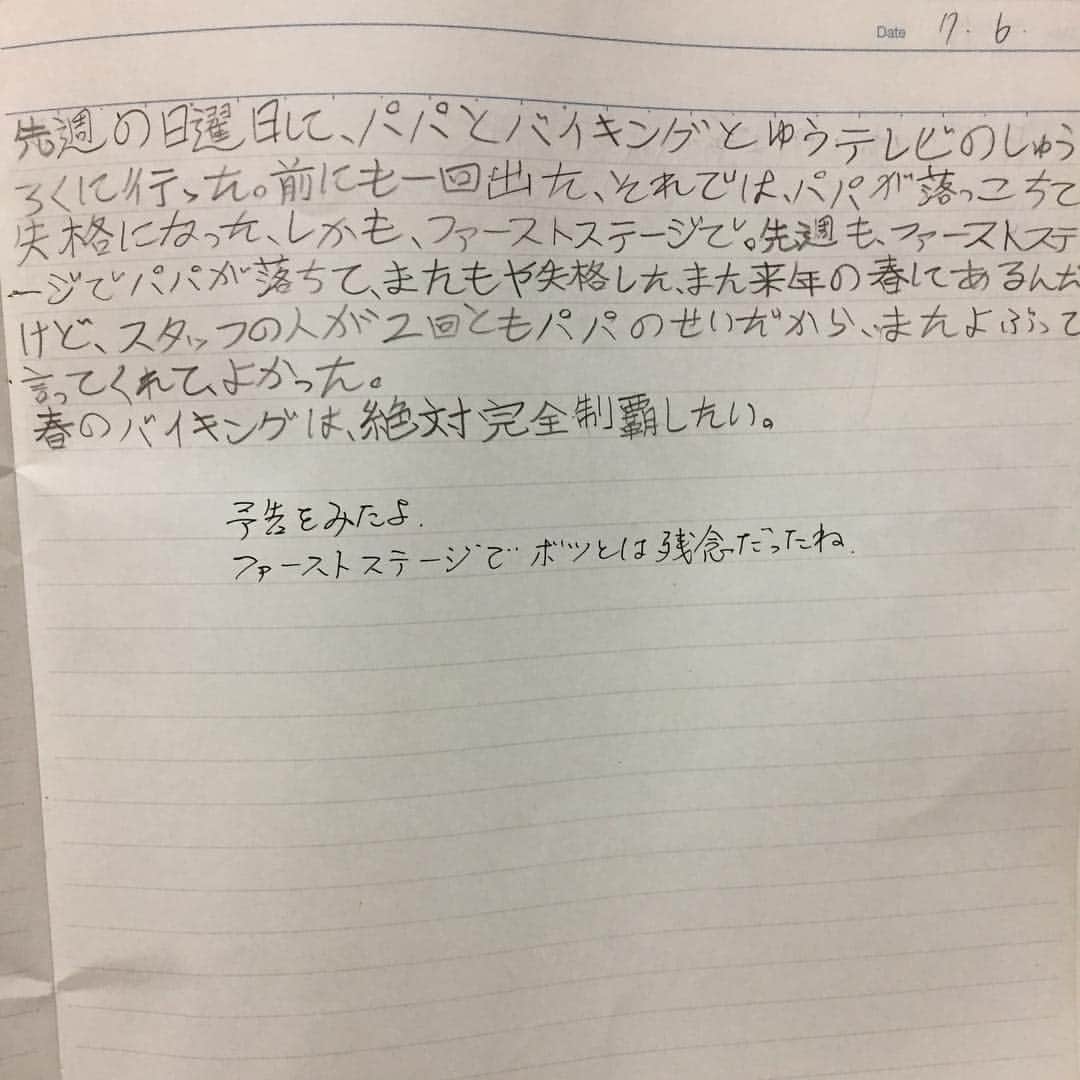 Date 7. 6.
先週の日曜日に、パパとバイキングとゆうテレビのしゅう
ろくに行った。前にも一回出た、それでは、パパが落っこちて
失格になった、しかも、ファーストステージで。先週も、ファーストステ
ージでパパが落ちて、またもや失格した、また来年の春にであるんだ
けど、スタッフの人が2回ともパパのせいだから、またよぶって
言ってくれて、よかった。
春のバイキングは、絶対完全制覇したい。
予告をみたよ.
ファーストステージでボツとは残念だったね.